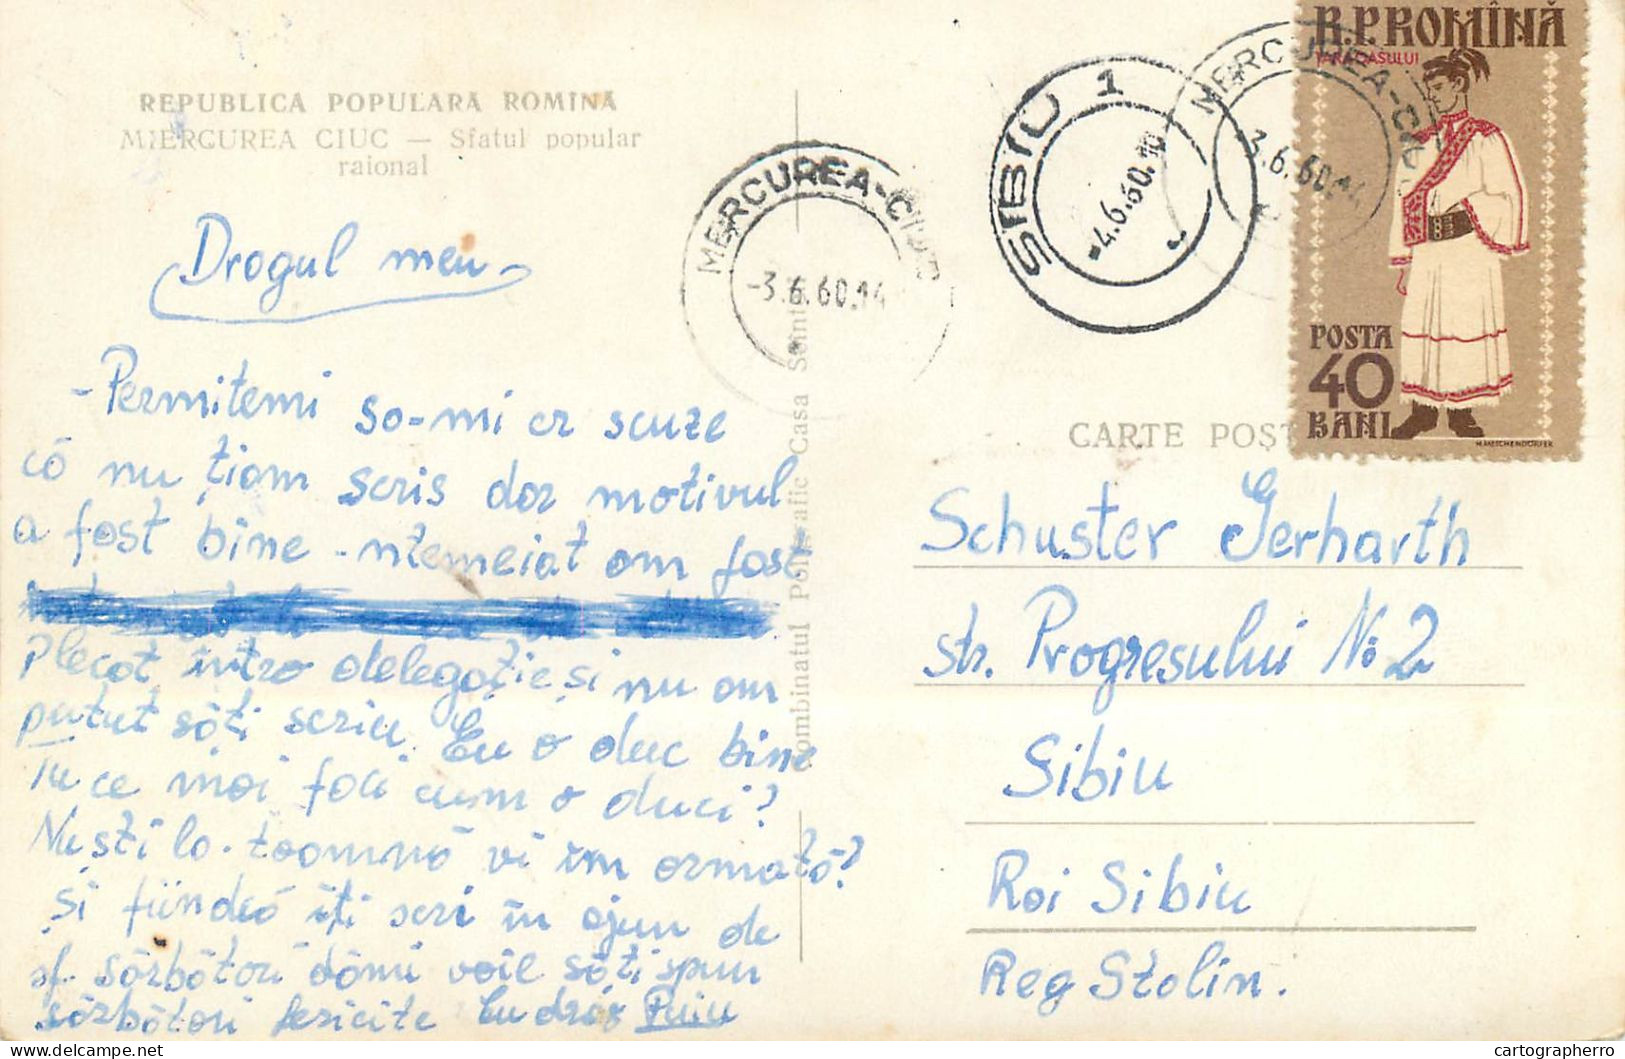 REPUBLICA POPULARĂ ROMÎNĂ
MIERCUREA CIUC — Sfatul popular
raional
Dragul meu
-Permitemi să-mi cr scuze
că nu țiam scris dar motivul
a fost bine -ntemeiat am fost
Plecat întro delegație și nu am
putut săți scriu. Eu o duc bine
Tu ce mai faci cum o duci?
Nu ști la-toamnă vi în armată?
Și fiindcă îți scri în ajun de
sf. sărbători dămi voie săți spun
sărbători fericite Cu drag Puiu
Combinatul Poligrafic Casa Scînt
MERCUREA-CIUC
-3.6.60.14
SIBIU 1
-4.6.60.10
MERCUREA-CIUC
3.6.60.14
R.P.ROMÎNĂ
ȚARA OAȘULUI
POSTA
40
BANI
H.MESCHENDÖRFER
CARTE POȘT
Schuster Gerharth
str. Progresului No 2
Sibiu
Rai Sibiu
Reg Stalin.
cartographerro